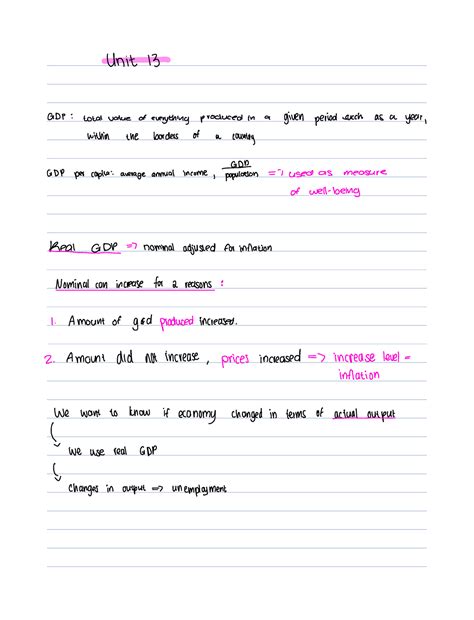 Unit 13
GDP : total value of everything produced in a given period such as a year,
within the borders of a country
GDP per capita: average annual income, GDP / population => used as measure
of well-being
Real GDP => nominal adjusted for inflation
Nominal can increase for 2 reasons :
1. Amount of g&d produced increased.
2. Amount did not increase, prices increased => increase level =
inflation
We want to know if economy changed in terms of actual output
We use real GDP
Changes in output => unemployment